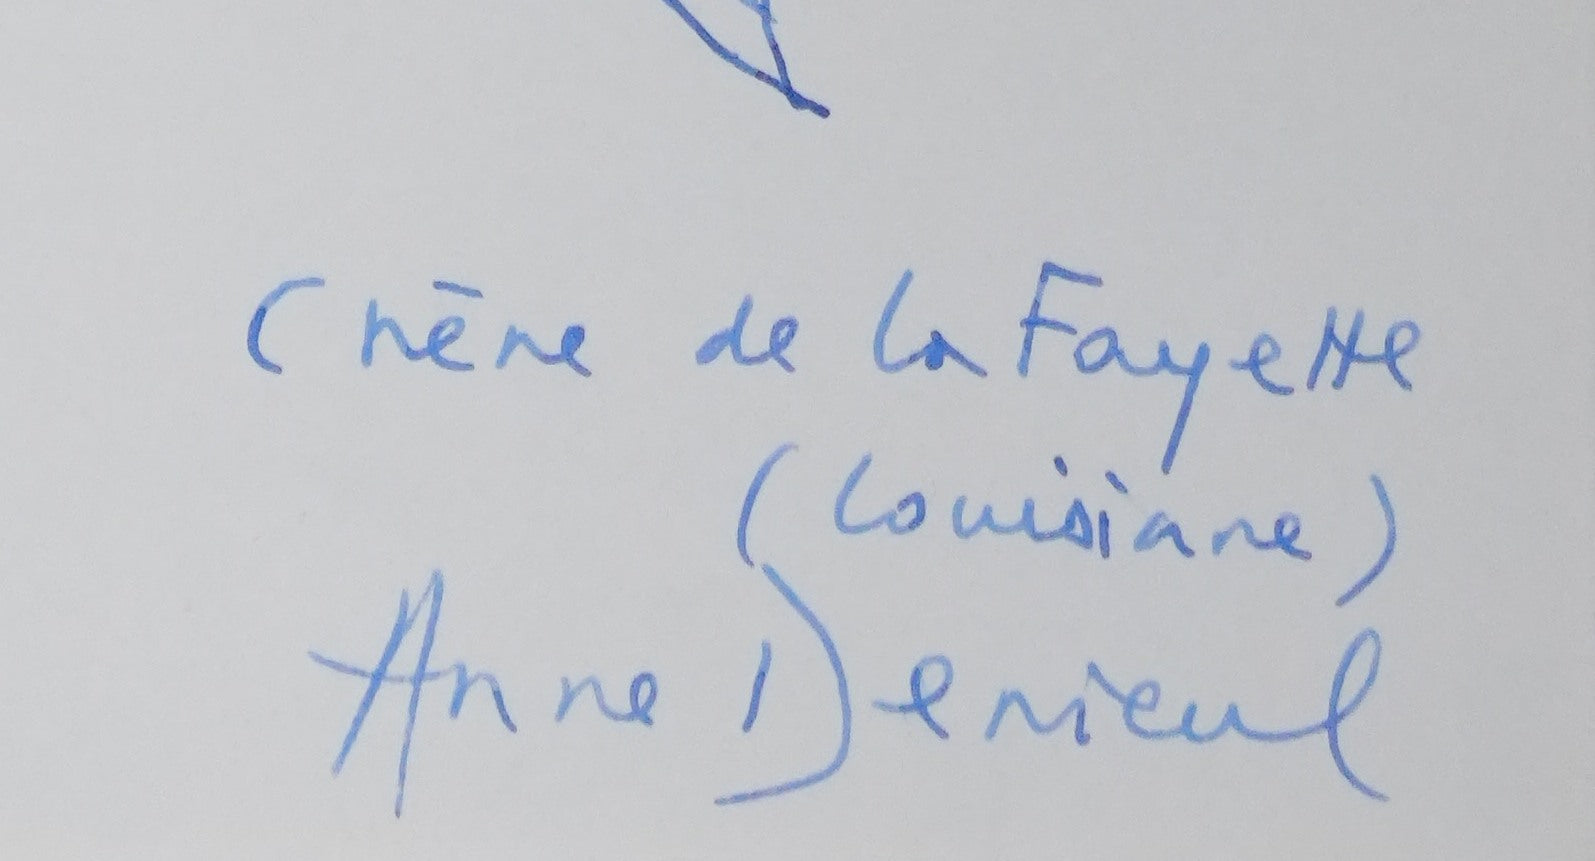 Chêne de la Fayette
(Louisiane)
Anne Denieul